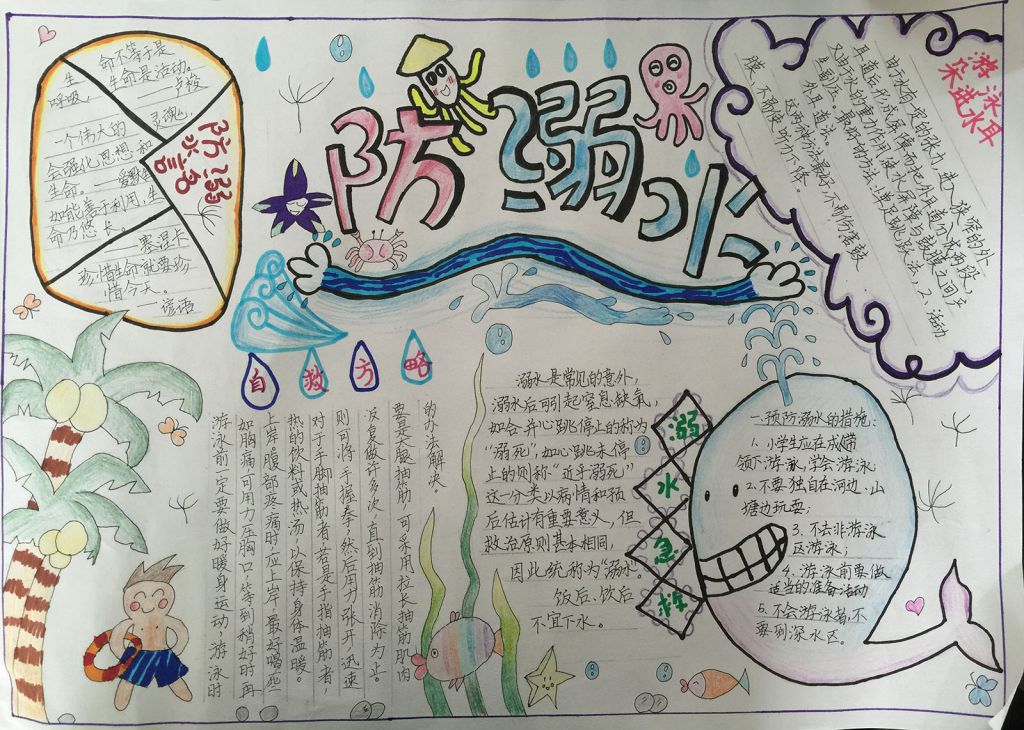 防溺水
防溺
水言名
生命不等于是
呼吸,生命是活动。
——卢梭
一个伟大的灵魂,
会强化思想和
生命。——爱默生
如能善于利用,生
命乃悠长。
——塞涅卡
珍惜生命就要珍
惜今天。
——谚语
游泳耳
朵进水
由于水有一定的张力,进入狭窄的外
耳道后形成屏障而把外耳道分成两段,
又由于水的重力作用,使水屏障与鼓膜之间产
生负压。
单足跳跃法,2、活动
外耳道法。
这两种方法最好,不易伤害鼓
膜,不易使听力下降。
自救方略
游泳前一定要做好暖身运动,游泳时
如胸痛可用力压胸口,等到稍好时再
上岸。腹部疼痛时应上岸,最好喝些
热的饮料或热汤,以保持身体温暖。
对于手脚抽筋者,若是手指抽筋者,
则可将手握拳,然后用力张开,迅速
反复做许多次,直到抽筋消除为止。
要是大腿抽筋,可采用拉长抽筋肌肉
的办法解决。
溺水是常见的意外,
溺水后可引起窒息缺氧,
如合并心跳停止的称为
“溺死”,如心跳未停
止的则称“近乎溺死”
这一分类以病情和预
后估计有重要意义,但
救治原则基本相同,
因此统称为“溺水”。
饭后、饮后
不宜下水。
溺
水
急
救
一.预防溺水的措施:
1.小学生应在成人带
领下游泳,学会游泳
2.不要独自在河边、山
塘边玩耍;
3.不去非游泳
区游泳;
4.游泳前要做
适当的准备活动
5.不会游泳者,不
要到深水区。